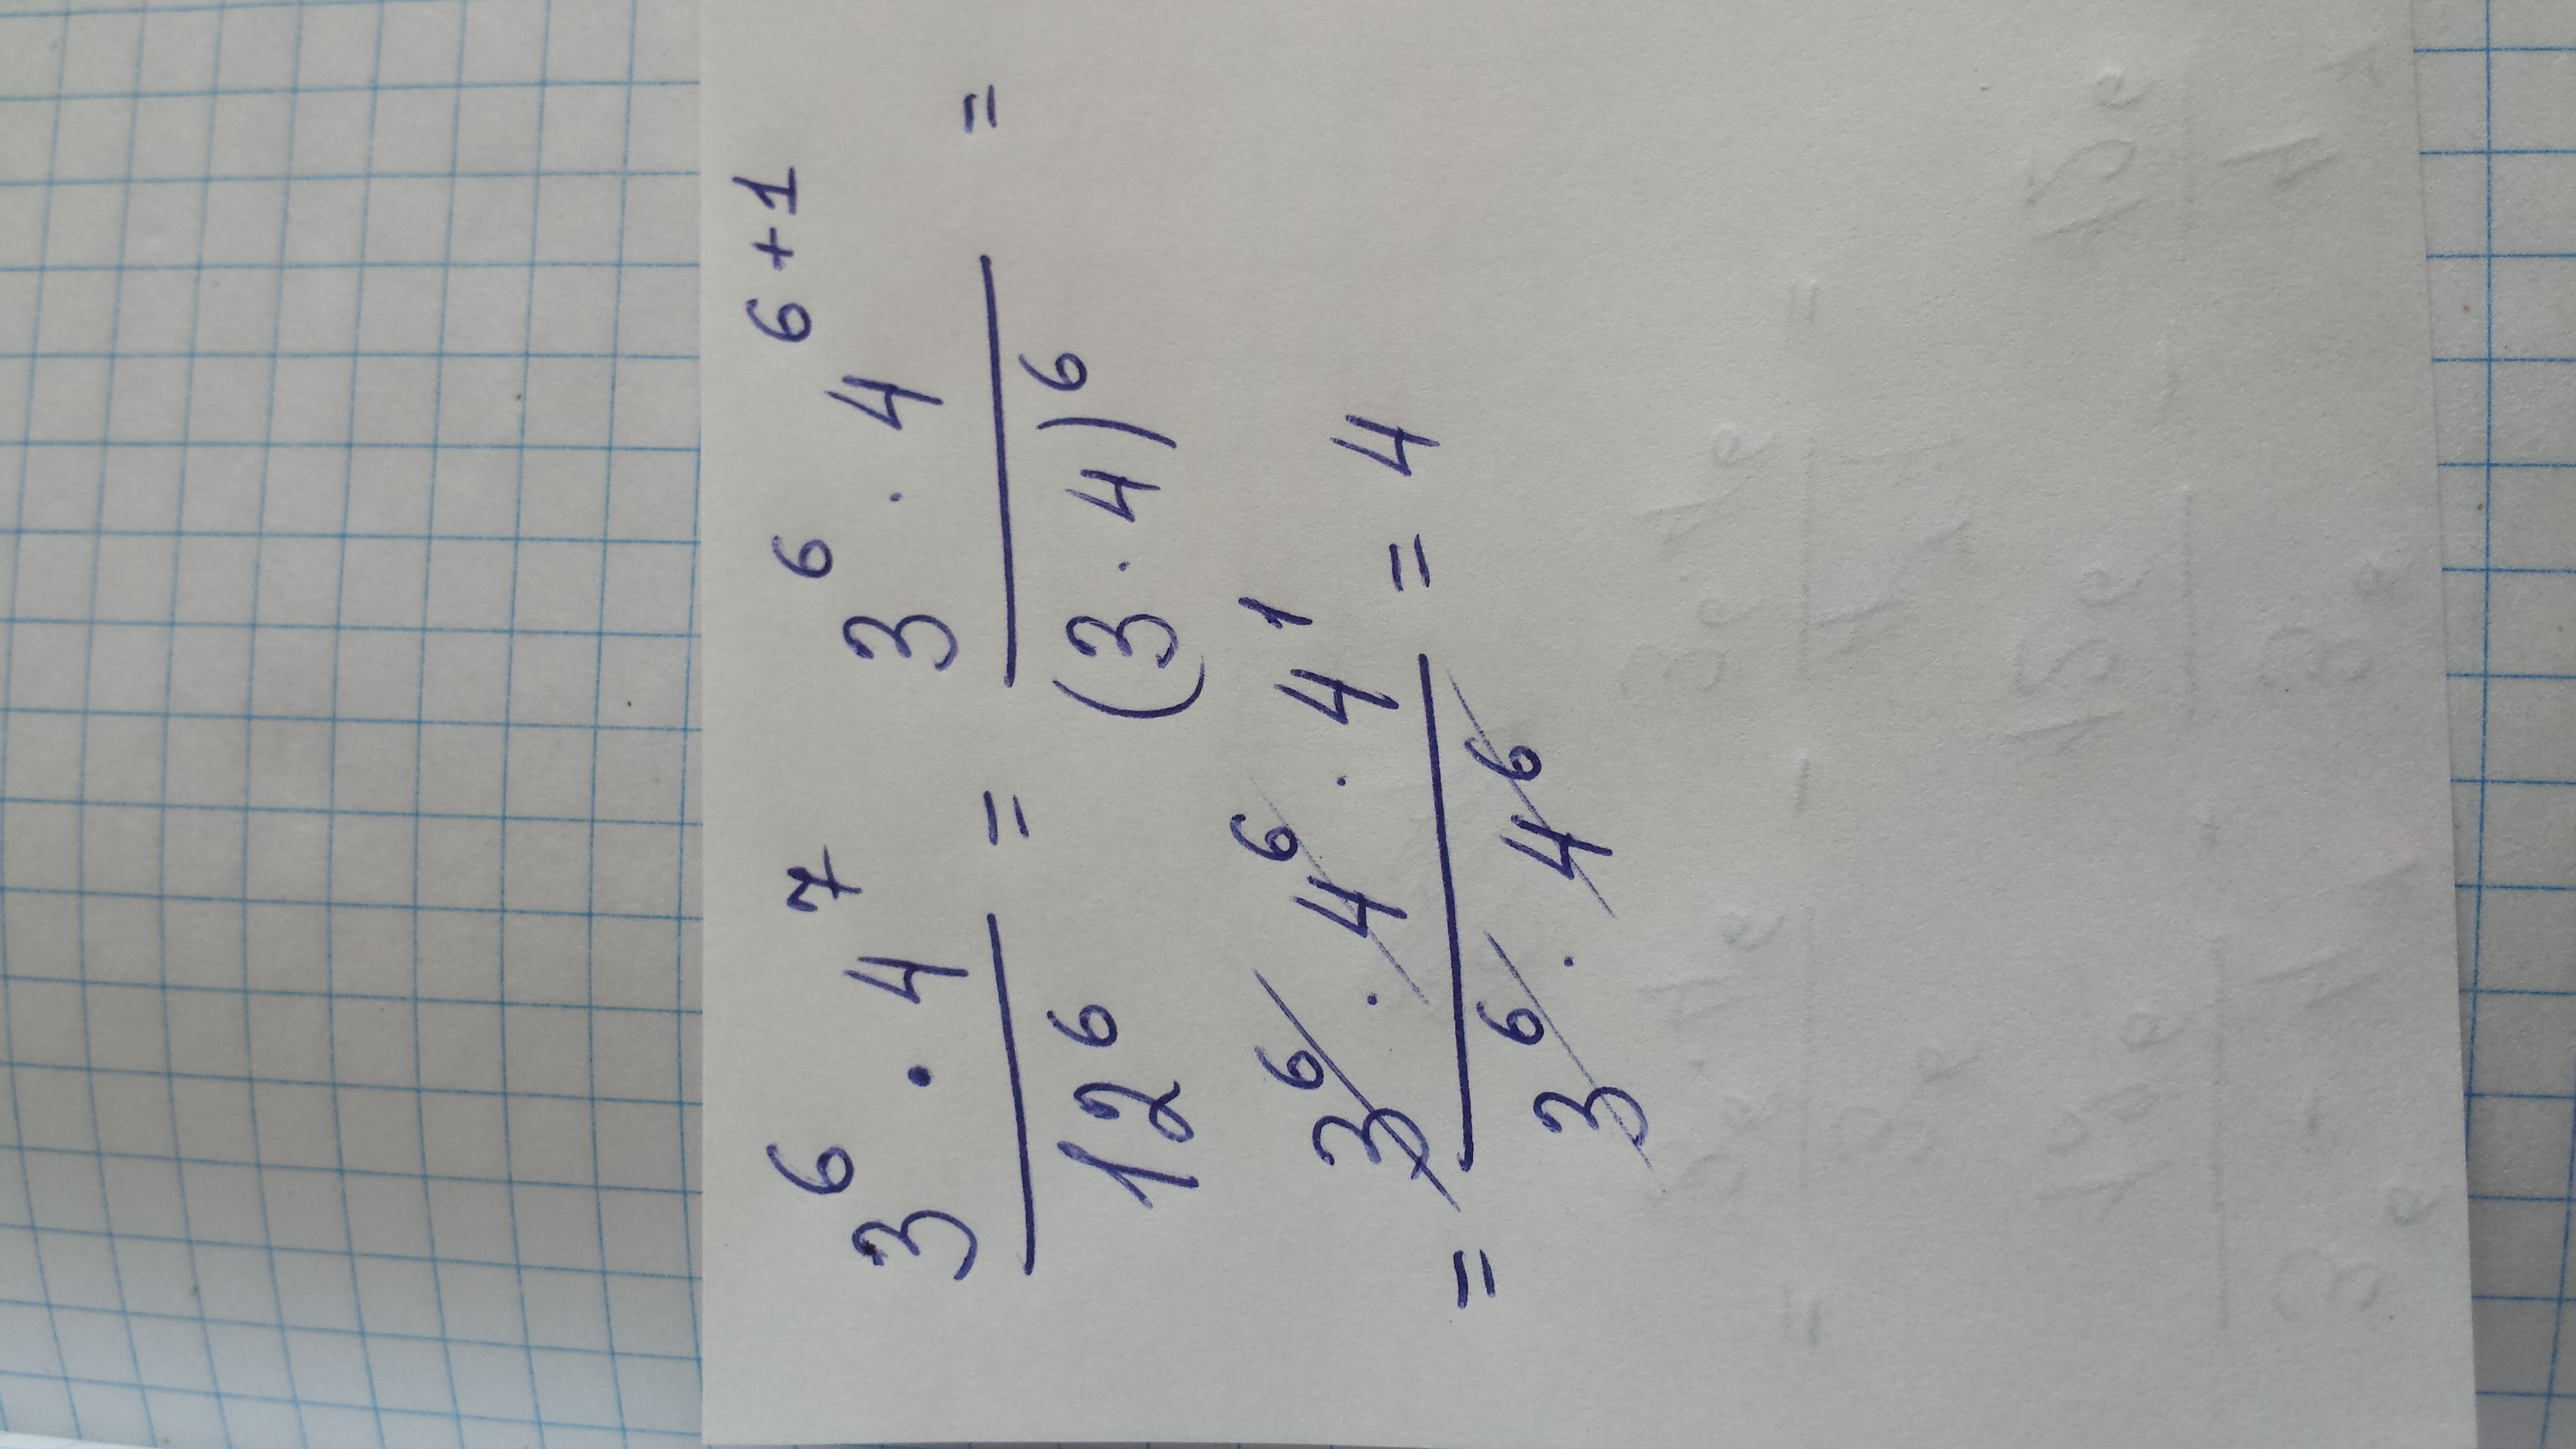 3⁶ · 4⁷ / 12⁶ = 3⁶ · 4⁶⁺¹ / (3 · 4)⁶ =
= 3⁶ · 4⁶ · 4¹ / 3⁶ · 4⁶ = 4